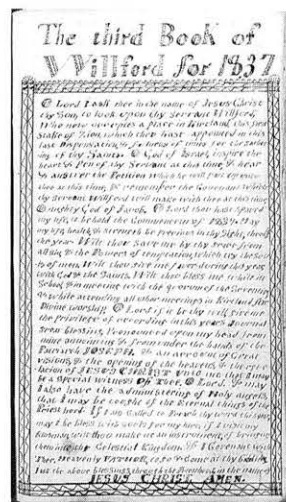 The third Book of
Willford for 1837
O Lord I ask thee in the name of Jesus Christ
thy Son, to look upon thy Servant Willford,
Who now occupies a place in Kirtland, the first
Stake of Zion, which thou hast appointed in this
last Dispensation, & fulness of times for the gather
ing of thy Saints. O God of Israel, inspire the
heart & Pen of thy Servant at this time, & hear
& answer the Petition which he will put up unto
thee at this time, & remember the Covenant which
thy Servant Willford will make with thee at this time.
O mighty God of Jacob, thou that hast spared
my life, to behold the Commencement of 1837, may
my life, health, & strength be precious in thy sight, through
the year. Wilt thou save me by thy power from
all sin, & the Powers of temptation, which try the Souls
of men, Wilt thou give me favor during the year
with God & the Saints, Wilt thou bless me while in
School & in meeting with the quorum of the Seventies
& while attending all other meetings in Kirtland for
Divine worship. O Lord if it be thy will give me
the Privilege of recording in this years Journal
great blessings, Pronounced upon my head, from
mine annointing & from under the hands of the
Patriarch JOSEPH, an account of Great
visions, & the opening of the heavens, & the reve
lation of JESUS CHRIST unto me that I may
be a special witness Of Thee, O Lord. & may
I also have the administering of Holy angels,
that I may be taught of the Eternal things of the
Priest hood. If I am Called to Preach thy word this year
may I be bless with souls for my hire, if I visit my
kinsman, wilt thou make me an instrument, of bringing
them into thy Celestial Kingdom. & I Covenant with
Thee, Heavenly Father, to give the Glory to thy
but the above blessings through thy in the name of
JESUS CHRIST AMEN.